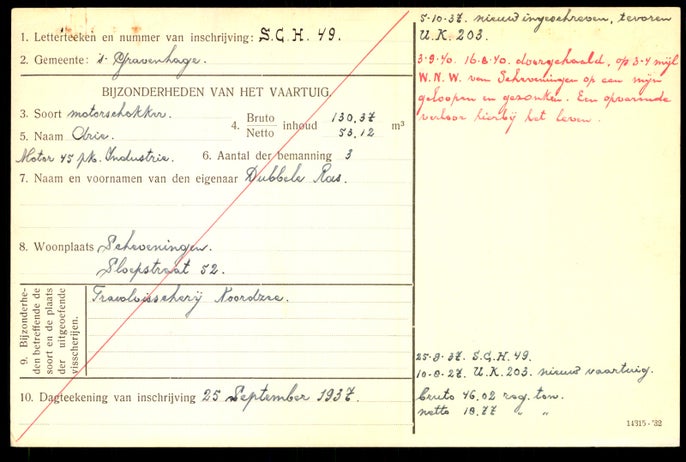 1. Letterteeken en nummer van inschrijving: S.C.H. 49.
2. Gemeente: 's Gravenhage.
BIJZONDERHEDEN VAN HET VAARTUIG.
3. Soort motorschokker.
4. Bruto inhoud 130,37 m³
Netto 53,12
5. Naam Arie.
Motor 45 pk. Industrie.
6. Aantal der bemanning 3
7. Naam en voornamen van den eigenaar Dubbele Ras.
8. Woonplaats Scheveningen.
Sloepstraat 52.
9. Bijzonderhe-
den betreffende de
soort en de plaats
der uitgeoefende
visscherijen.
Trawlvisscherij Noordzee.
10. Dagteekening van inschrijving 25 September 1937.
5-10-37. nieuw ingeschreven, tevoren
U.K. 203.
3-9-40. 16-8-40. doorgehaald, op 3-4 mijl
W.N.W. van Scheveningen op een mijn
geloopen en gezonken. Een opvarende
verloor hierbij het leven.
25-9-37. S.C.H. 49.
10-9-27. U.K. 203. nieuw vaartuig.
bruto 46,02 reg. ton.
netto 18,77 " "
14315-'32